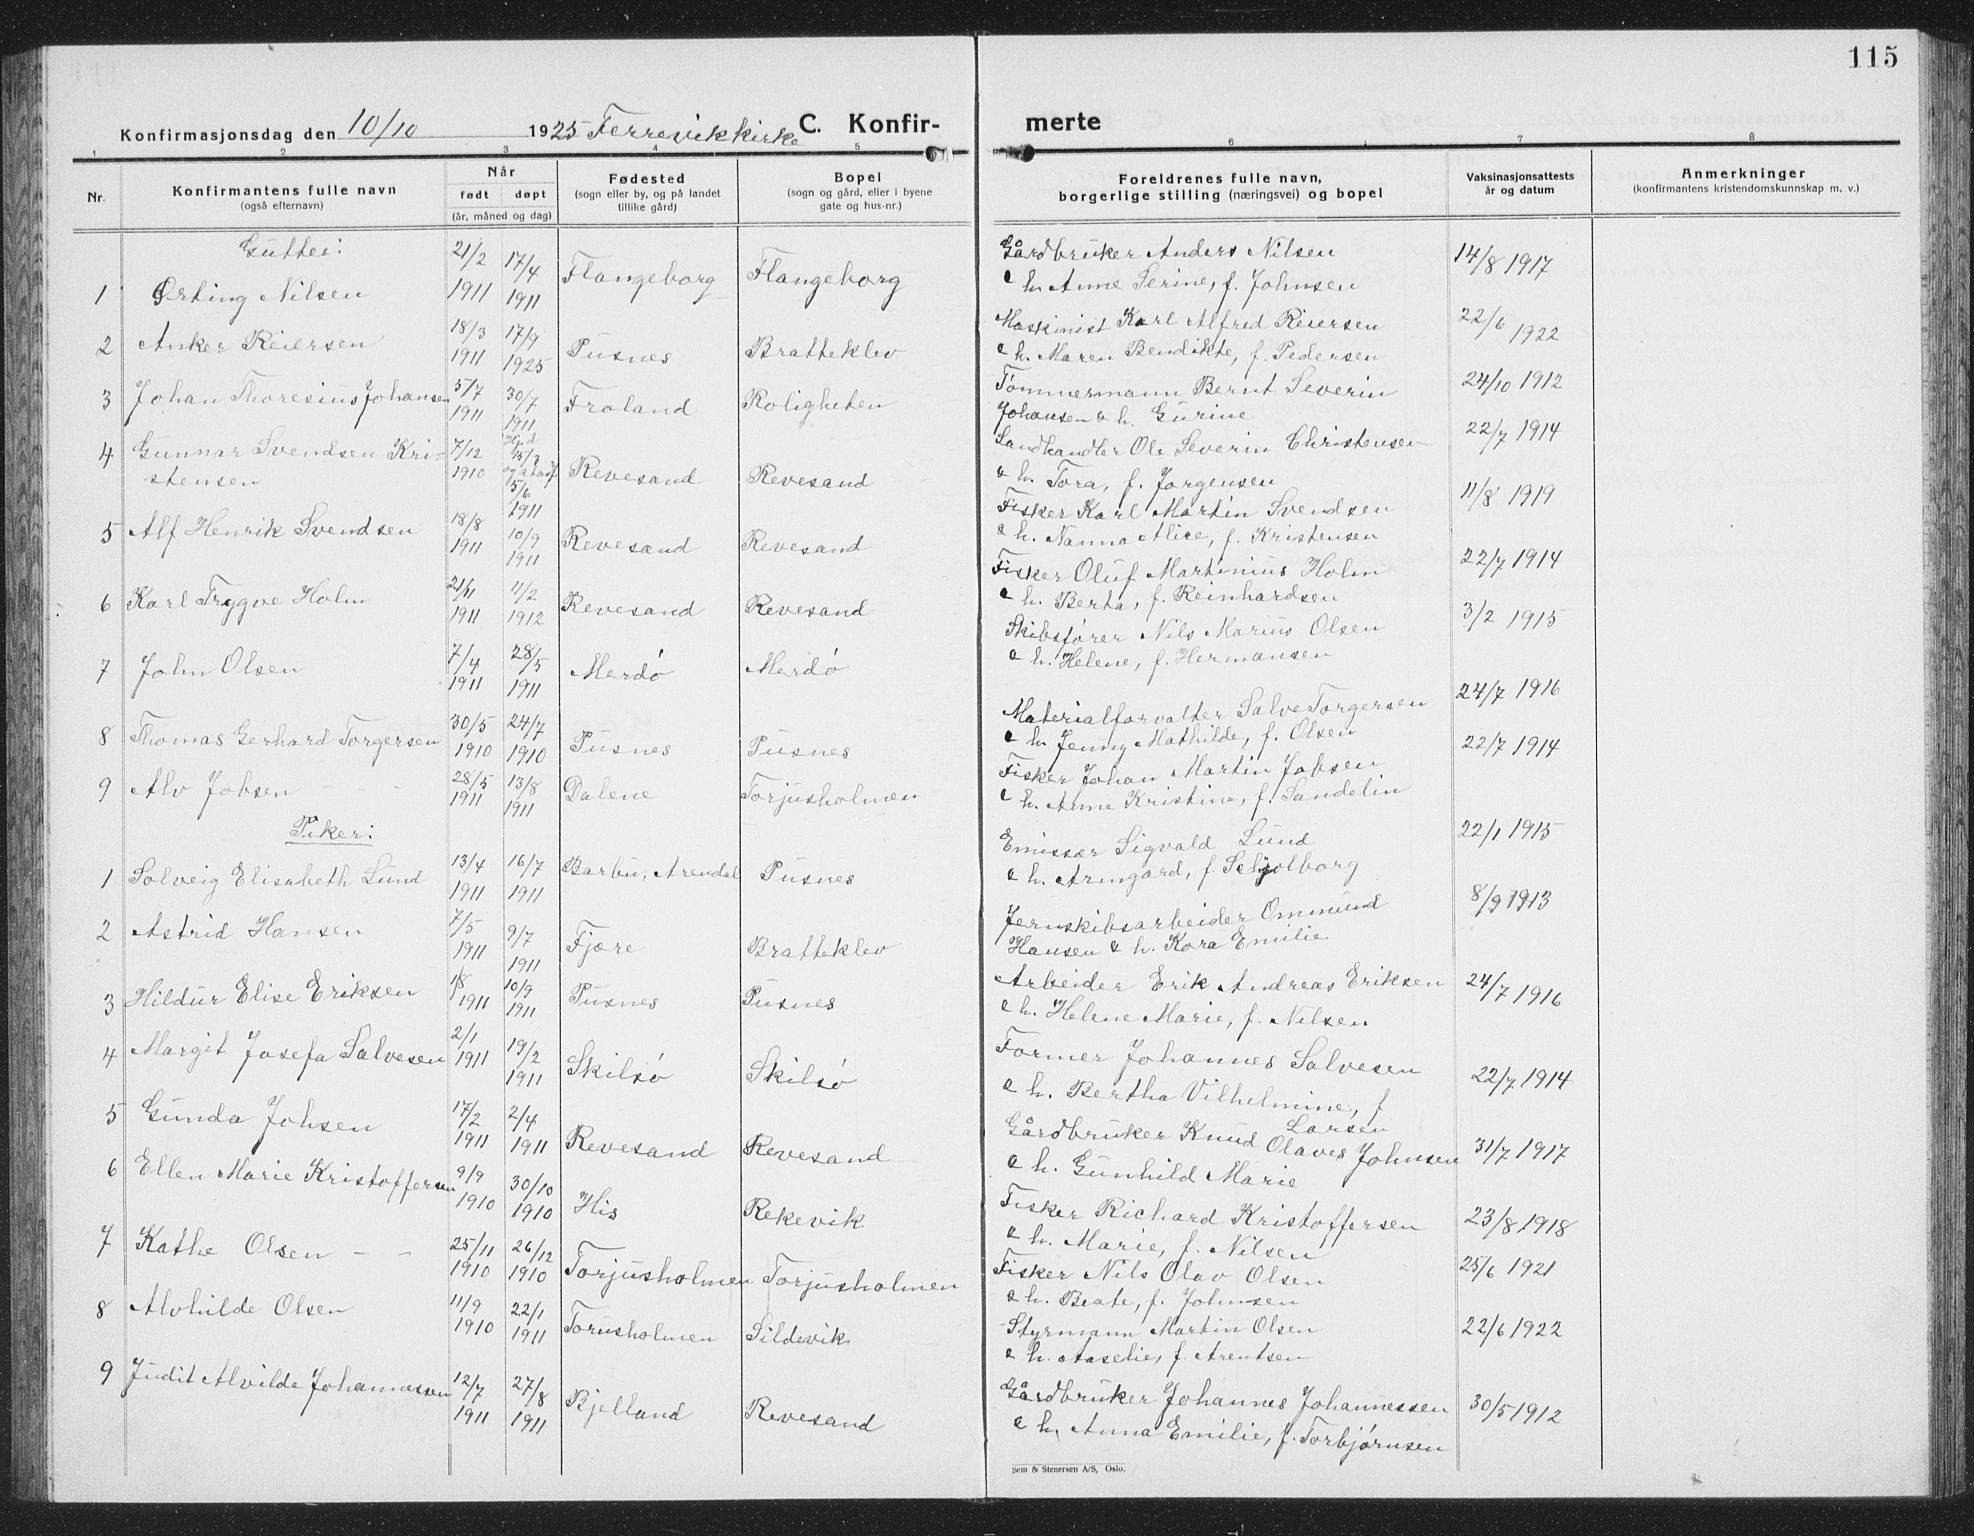 115
Konfirmasjonsdag den 10/10 1925 Færrevik kirke C. Konfir- merte
1 2 3 4 5 6 7 8
Nr. Konfirmantens fulle navn (også efternavn) Når født døpt (år, måned og dag) Fødested (sogn eller by, og på landet tillike gård) Bopel (sogn og gård, eller i byene gate og hus-nr.) Foreldrenes fulle navn, borgerlige stilling (næringsvei) og bopel Vaksinasjonsattests år og datum Anmerkninger (konfirmantens kristendomskunnskap m. v.)
Gutter:
1 Ørting Nilsen 21/2 1911 17/4 1911 Flangeborg Flangeborg Gårdbruker Anders Nilsen & h. Anne Serine, f. Johnsen 14/8 1917
2 Anker Reiersen 18/3 1911 17/9 1925 Pusnes Bratteklev Maskinist Karl Alfred Reiersen & h. Maren Bendikte, f. Pedersen 22/6 1922
3 Johan Thoresius Johansen 5/7 1911 30/7 1911 Froland Roligheten Tømmermann Bernt Severin Johansen & h. Gurine 24/10 1912
4 Gunnar Svendsen Kri- stensen 7/12 1910 Hjd 15/3 og stadf 5/6 1911 Revesand Revesand Landhandler Ole Severin Christensen & h. Tora, f. Jørgensen 22/7 1914
5 Alf Henrik Svendsen 18/8 1911 10/9 1911 Revesand Revesand Fisker Karl Martin Svendsen & h. Nanna Alice, f. Kristensen 11/8 1919
6 Karl Trygve Holm 21/11 1911 11/2 1912 Revesand Revesand Fisker Oluf Martinius Holm & h. Berta, f. Reinhardsen 22/7 1914
7 John Olsen 7/4 1911 28/5 1911 Merdø Merdø Skibsfører Nils Marius Olsen & h. Helene, f. Hermansen 3/2 1915
8 Thomas Gerhard Torgersen 30/5 1910 24/7 1910 Pusnes Pusnes Materialforvalter Salve Torgersen & h. Jenny Mathilde, f. Olsen 24/7 1916
9 Alv Jobsen - - - 28/5 1911 13/8 1911 Dalene Torjusholmen Fisker Johan Martin Jobsen & h. Anne Kristine, f. Sandelin 22/7 1914
Piker:
1 Solveig Elisabeth Lund 13/4 1911 16/7 1911 Barbu, Arendal Pusnes Emissær Sigvald Lund & h. Armgard, f. Schjolborg 22/1 1915
2 Astrid Hansen 7/5 1911 9/7 1911 Fjære Bratteklev Jernskibsarbeider Ommund Hansen & h. Kora Emilie 8/9 1913
3 Hildur Elise Eriksen 1/8 1911 10/9 1911 Pusnes Pusnes Arbeider Erik Andreas Eriksen & h. Helene Marie, f. Nilsen 24/7 1916
4 Margit Josefa Salvesen 2/1 1911 19/2 1911 Skilsø Skilsø Former Johannes Salvesen & h. Bertha Vilhelmine, f Larsen 22/7 1914
5 Gunda Johsen 17/2 1911 2/4 1911 Revesand Revesand Gårdbruker Knud Olaves Johnsen & h. Gunhild Marie 31/7 1917
6 Ellen Marie Kristoffersen 9/9 1910 30/10 1910 His Rekevik Fisker Richard Kristoffersen & h. Marie, f. Nilsen 23/8 1918
7 Kathe Olsen - - 25/11 1910 26/12 1910 Torjusholmen Torjusholmen Fisker Nils Olav Olsen & h. Beate, f. Johnsen 25/6 1921
8 Alvhilde Olsen 11/9 1910 22/1 1911 Torusholmen Sildevik Styrmann Martin Olsen & h. Aaselie, f. Arentsen 22/6 1922
9 Judit Alvilde Johannessen 12/7 1911 27/8 1911 Bjelland Revesand Gårdbruker Johannes Johannessen & h. Anna Emilie, f. Torbjørnsen 30/5 1912
Sem & Stenersen A/S, Oslo.